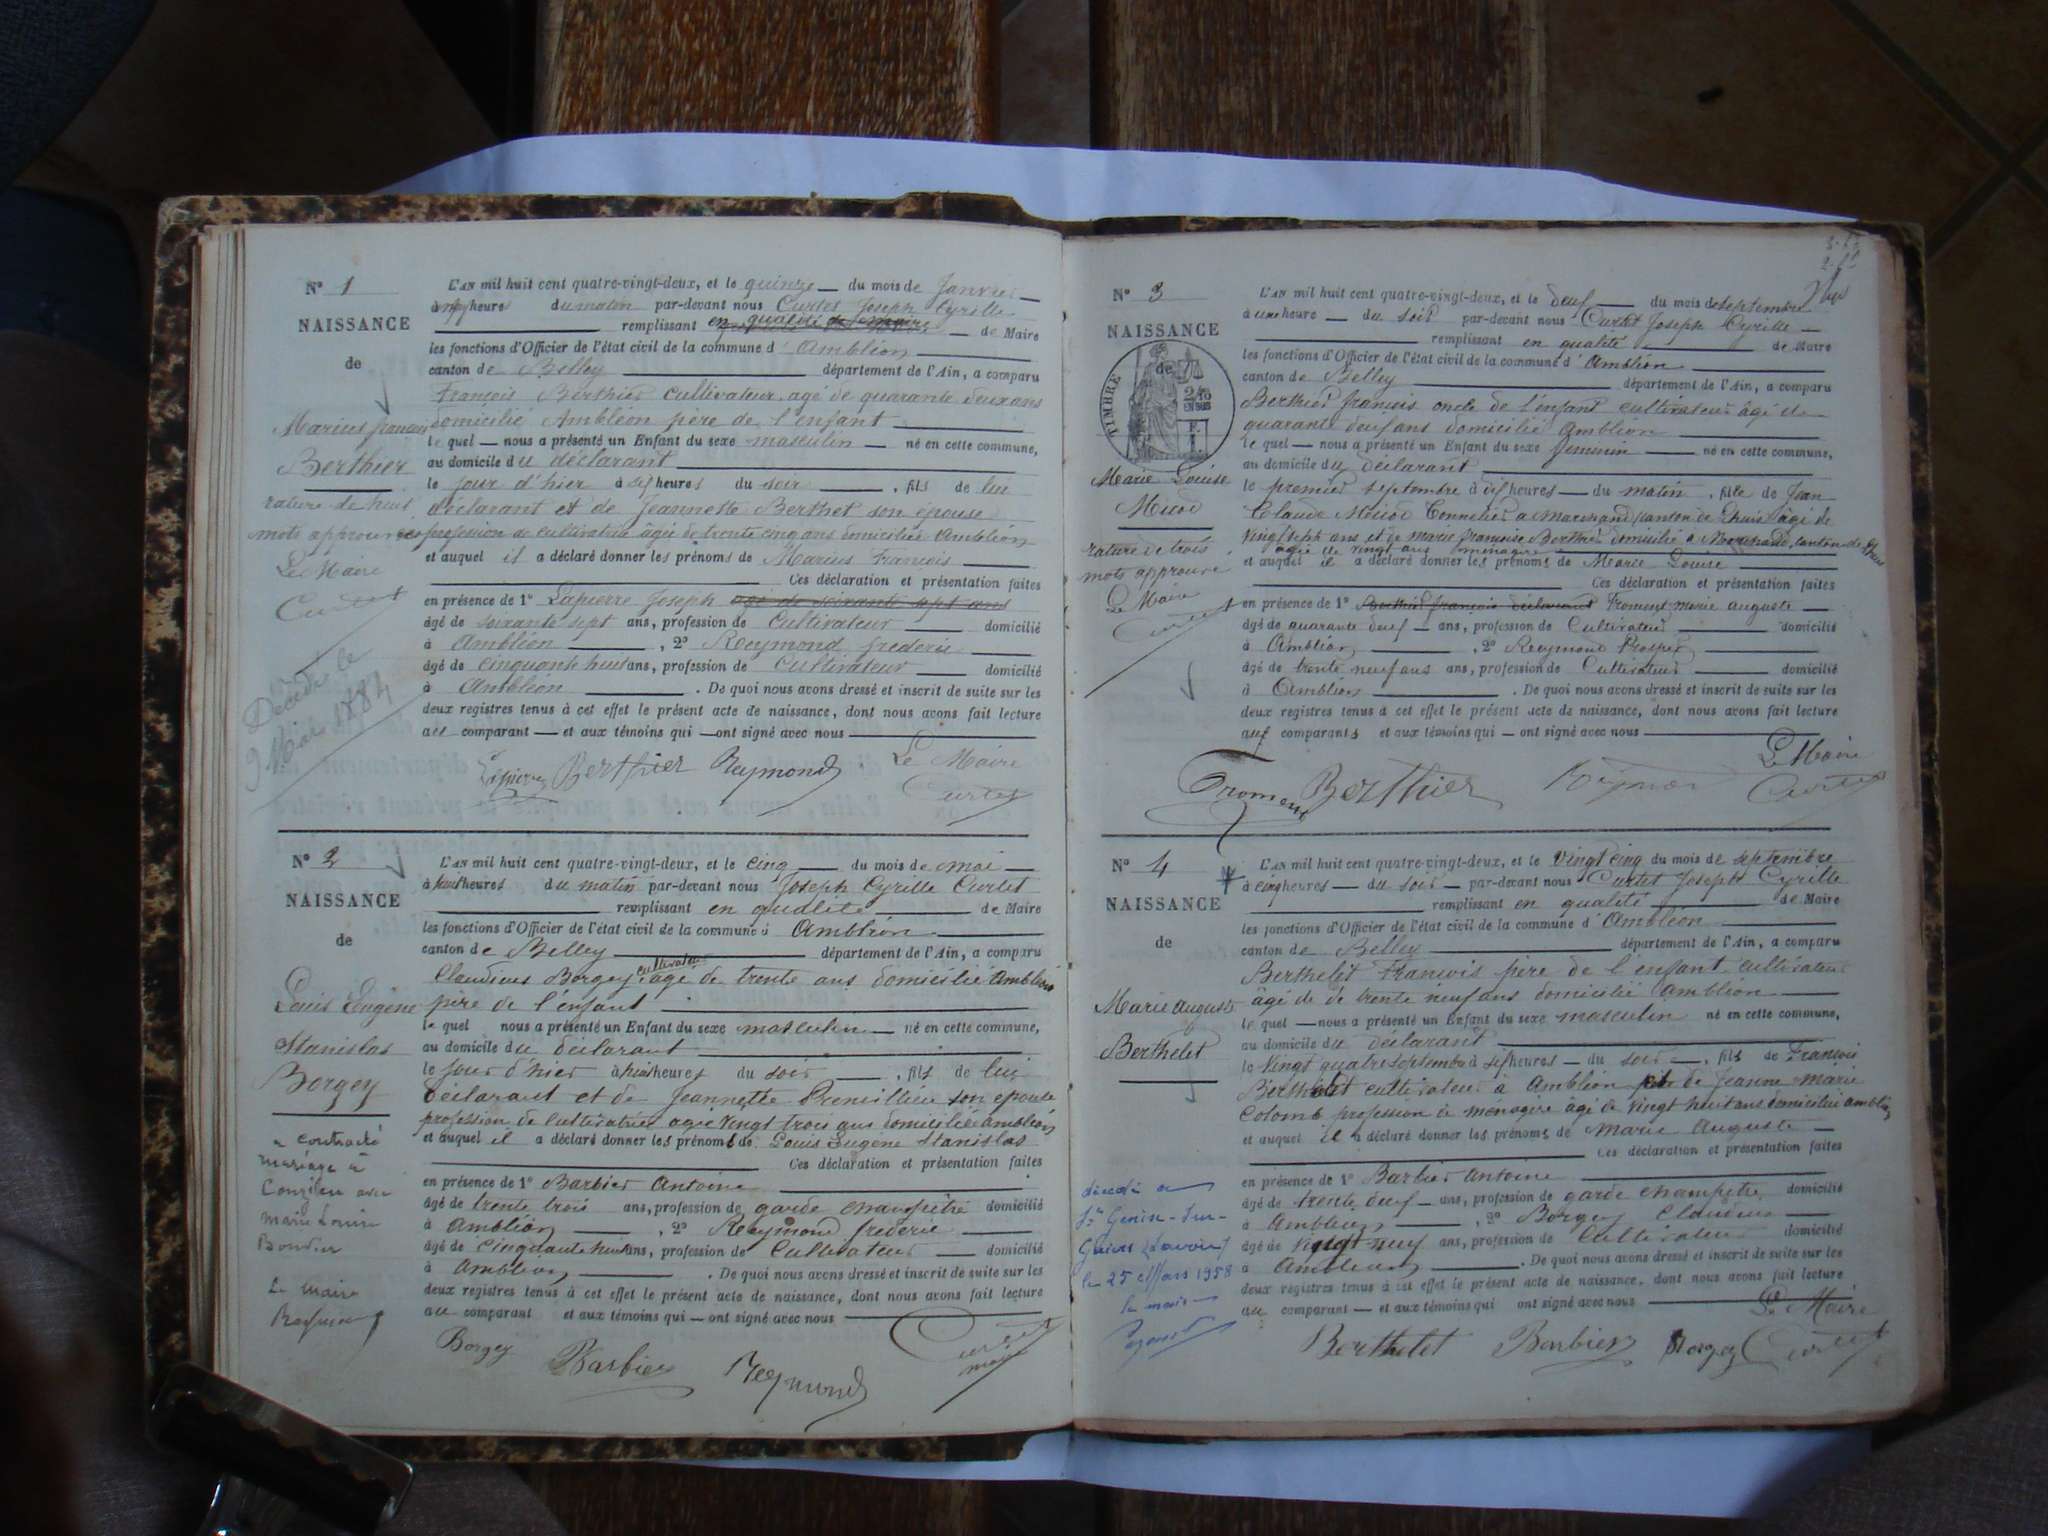 N° 1
NAISSANCE
de
Marius françois
Berthier
rature de huit
mots approuvés
Le Maire
Curtet
Décédé le
9 Mai 1884
L'AN mil huit cent quatre-vingt-deux, et le quinze du mois de Janvier
heures du matin par-devant nous Curtet Joseph Cyrille
remplissant en qualité de maire de Maire
les fonctions d'Officier de l'état civil de la commune d'Ambléon
canton de Belley département de l'Ain, a comparu
François Berthier cultivateur agé de quarante deux ans
domicilié Ambléon père de l'enfant
le quel nous a présenté un Enfant du sexe masculin né en cette commune,
au domicile du déclarant
le jour d'hier à heures du soir, fils de lui
déclarant et de Jeannette Berthet son épouse
profession de cultivatrice âgée de trente cinq ans domiciliée Ambléon
et auquel il a déclaré donner les prénoms de Marius François
Ces déclaration et présentation faites
en présence de 1° Lapierre Joseph agé de soixante sept ans
âgé de soixante sept ans, profession de Cultivateur domicilié
à Ambléon, 2° Reymond frederic
âgé de cinquante huit ans, profession de Cultivateur domicilié
à Ambléon. De quoi nous avons dressé et inscrit de suite sur les
deux registres tenus à cet effet le présent acte de naissance, dont nous avons fait lecture
au comparant et aux témoins qui ont signé avec nous
Lapierre Berthier Reymond Le Maire
Curtet
N° 2
NAISSANCE
de
Louis Eugène
Stanislas
Borgey
a contracté
mariage à
Conzieu avec
marie Louise
Le maire
L'AN mil huit cent quatre-vingt-deux, et le cinq du mois de mai
à huit heures du matin par-devant nous Joseph Cyrille Curtet
remplissant en qualité de Maire
les fonctions d'Officier de l'état civil de la commune d'Ambléon
canton de Belley département de l'Ain, a comparu
Claudius Borgey cultivateur âgé de trente ans domicilié Ambléon
père de l'enfant
le quel nous a présenté un Enfant du sexe masculin né en cette commune,
au domicile du déclarant
le jour d'hier à huit heures du soir, fils de lui
déclarant et de Jeannette son epouse
profession de cultivatrice agée vingt trois ans domiciliée ambléon
et auquel il a déclaré donner les prénoms de Louis Eugene Stanislas
Ces déclaration et présentation faites
en présence de 1° Barbier Antoine
âgé de trente trois ans, profession de garde champêtre domicilié
à Ambléon, 2° Reymond frederic
âgé de Cinquante huit ans, profession de Cultivateur domicilié
à Ambléon. De quoi nous avons dressé et inscrit de suite sur les
deux registres tenus à cet effet le présent acte de naissance, dont nous avons fait lecture
au comparant et aux témoins qui ont signé avec nous
Borgey Barbier Reymond Curtet
maire
N° 3
NAISSANCE
de
TIMBRE
2/10
EN SUS
Marie Louise
Micod
rature de trois
mots approuvé
Le Maire
Curtet
L'AN mil huit cent quatre-vingt-deux, et le deux du mois de septembre
à une heure du soir par-devant nous Curtet Joseph Cyrille
remplissant en qualité de Maire
les fonctions d'Officier de l'état civil de la commune d'Ambléon
canton de Belley département de l'Ain, a comparu
Berthier françois oncle de l'enfant cultivateur âgé de
quarante deux ans domicilié Ambléon
le quel nous a présenté un Enfant du sexe féminin né en cette commune,
au domicile du déclarant
le premier septembre à dix heures du matin, fille de Jean
Claude Micod Tonnelier a Marchand canton de Lhuis âgé de
vingt sept ans et de marie françoise Berthier domicilié a Marchand, canton de Lhuis
agée de vingt ans ménagère
et auquel il a déclaré donner les prénoms de Marie Louise
Ces déclaration et présentation faites
en présence de 1° Berthier françois déclarant Froment marie auguste
âgé de quarante deux ans, profession de Cultivateur domicilié
à Ambléon, 2° Reymond Prosper
âgé de trente neuf ans ans, profession de Cultivateur domicilié
à Ambléon. De quoi nous avons dressé et inscrit de suite sur les
deux registres tenus à cet effet le présent acte de naissance, dont nous avons fait lecture
aux comparants et aux témoins qui ont signé avec nous
Le Maire
Froment Berthier Reymond Curtet
N° 4
NAISSANCE
de
Marie auguste
Berthelet
décédé à
St Genix-sur-
Guiers (Savoie)
le 25 Mars 1958
le maire
L'AN mil huit cent quatre-vingt-deux, et le vingt cinq du mois de septembre
à cinq heures du soir par-devant nous Curtet Joseph Cyrille
remplissant en qualité de Maire
les fonctions d'Officier de l'état civil de la commune d'Ambléon
canton de Belley département de l'Ain, a comparu
Berthelet Francois père de l'enfant cultivateur
âgé de de trente neuf ans domicilié Ambléon
le quel nous a présenté un Enfant du sexe masculin né en cette commune,
au domicile du déclarant
le vingt quatre septembre à heures du soir, fils de Francois
Berthelet cultivateur à Ambléon et de Jeanne marie
Colomb profession de menagère âgé de vingt huit ans domiciliée ambléon
et auquel il a déclaré donner les prénoms de Marie Auguste
Ces déclaration et présentation faites
en présence de 1° Barbier antoine
âgé de trente deux ans, profession de garde champêtre domicilié
à Ambléon, 2° Borgey Claudius
âgé de vingt neuf ans, profession de Cultivateur domicilié
à Ambléon. De quoi nous avons dressé et inscrit de suite sur les
deux registres tenus à cet effet le présent acte de naissance, dont nous avons fait lecture
au comparant et aux témoins qui ont signé avec nous
Le Maire
Berthelet Barbier Borgey Curtet